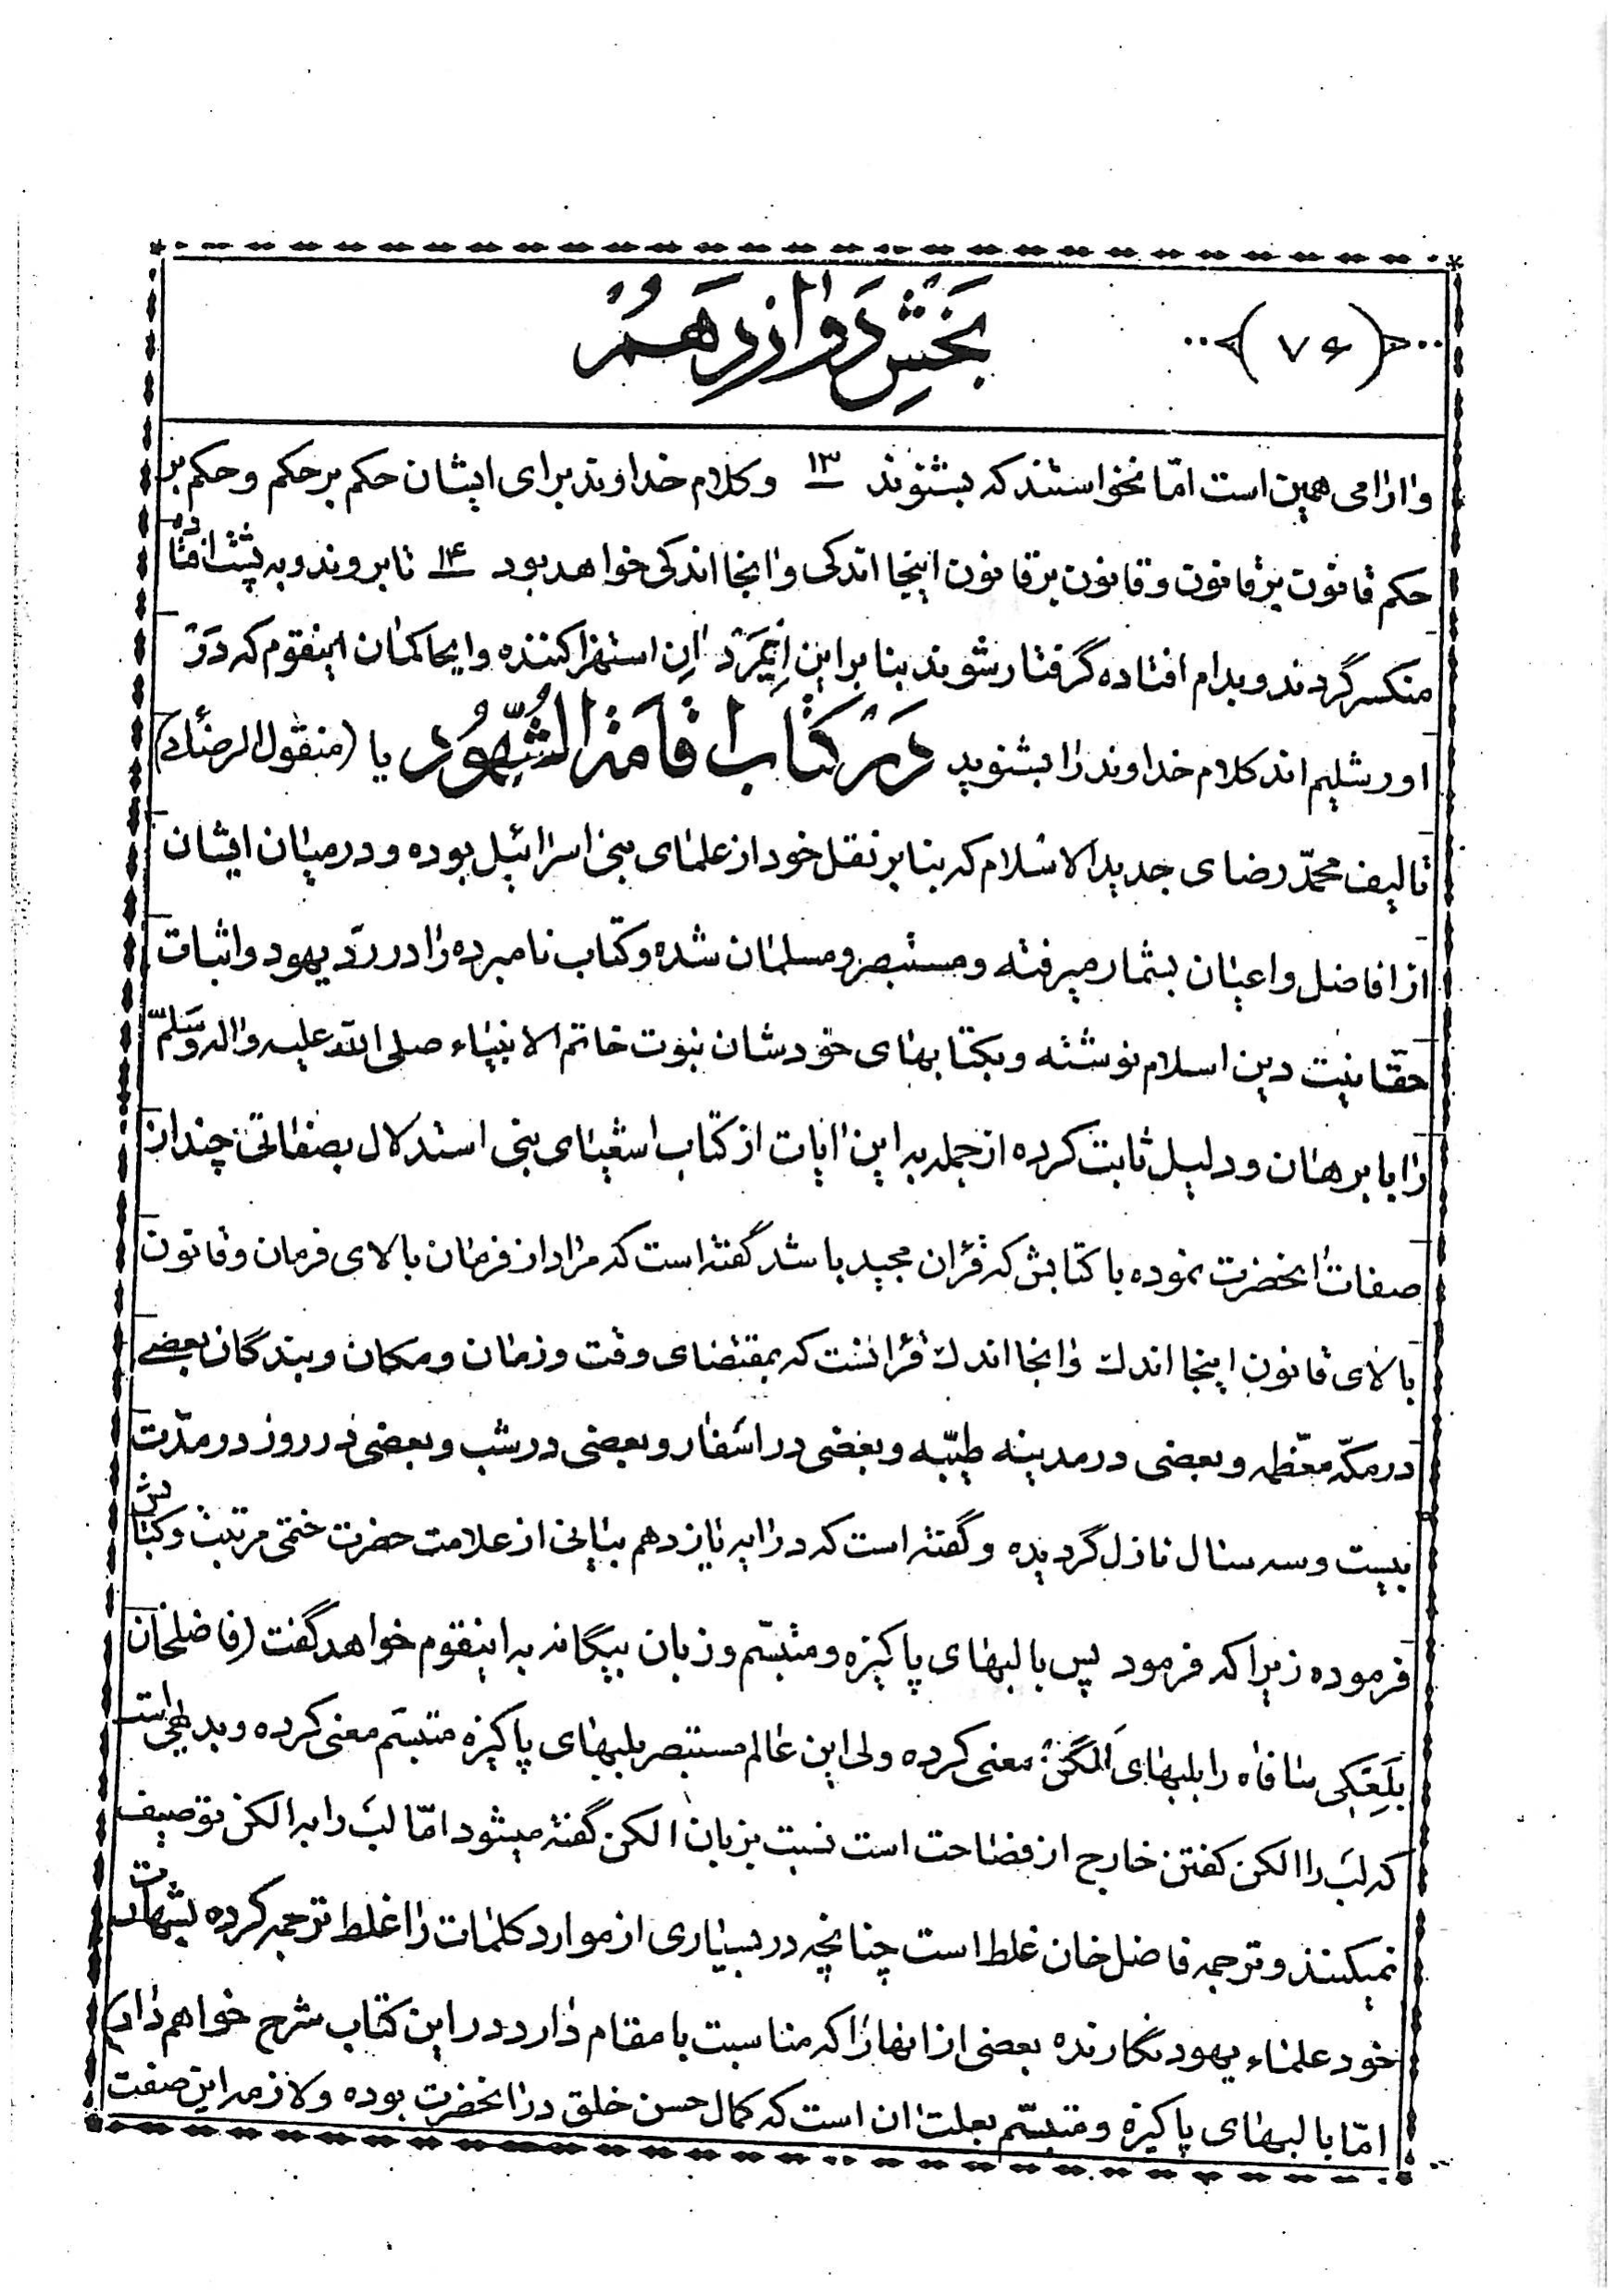 (۷۶)
بَخشِ دَوازدَهُم
و ارامی همین است امّا نخواستند که بشنوند ۱۳ و کلام خداوند برای ایشان حکم بر حکم و حکم بر
حکم قانون بر قانون و قانون بر قانون اینجا اندکی و انجا اندکی خواهد بود ۱۴ تا بروند و به پشت افتاده
منکسر گردند و بدام افتاده گرفتار شوند بنا بر این ایمَردان استهزا کننده و ایحاکمان اینقوم که دَر
اورشلیم اند کلام خداوند را بشنوید دَر کتاب اقامة الشُّهُود یا (منقول الرضائی)
تالیف محمّد رضای جدید الاسلام که بنا بر نقل خود از علمای بنی اسرائیل بوده و در میان ایشان
از افاضل و اعیان بشمار میرفته و مستبصر و مسلمان شده و کتاب نامبرده را در ردّ یهود و اثبات
حقّانیت دین اسلام نوشته و بکتابهای خودشان نبوت خاتم الانبیاء صلی الله علیه و اله وَسَلمّ
را با برهان و دلیل ثابت کرده از جمله به این ایات از کتاب اشعیای نبی استدلال بصفاتی چند از
صفات انحضرت نموده با کتابش که قران مجید باشد گفته است که مراد از فرمان بالای فرمان و قانون
بالای قانون اینجا اندک و انجا اندک قرانست که بمقتضای وقت و زمان و مکان و بندگان بعضی
در مکّه معّظمه و بعضی در مدینه طیّبه و بعضی در اسفار و بعضی در شب و بعضی در روز در مدّت
بیست و سه سال نازل گردیده و گفته است که در ایه یازدهم بیانی از علامت حضرت ختمی مرتبت و کتابش
فرموده زیرا که فرمود پس با لبهای پاکیزه و متبسّم و زبان بیگانه به اینقوم خواهد گفت (فاضلخان
بلَعِکی سافاه را بلبهای اَلکَن معنی کرده ولی این عالم مستبصر بلبهای پاکیزه متبسّم معنی کرده و بدیهی است
که لب را الکن گفتن خارج از فصاحت است نسبت بزبان الکن گفته میشود امّا لب را به الکن توصیف
نمیکنند و ترجمه فاضل خان غلط است چنانچه در بسیاری از موارد کلمات را غلط ترجمه کرده بشهادت
خود علماء یهود نگارنده بعضی از انها را که مناسبت با مقام دارد در این کتاب شرح خواهم داد)
امّا با لبهای پاکیزه و متبسّم بعلت ان است که کمال حسن خلق در انحضرت بوده و لازمه این صفت